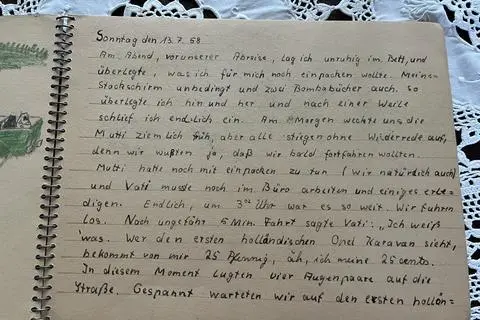 Sonntag den 13.7.68
Am Abend, vor unserer Abreise, lag ich unruhig im Bett, und
überlegte, was ich für mich noch einpacken wollte. Meinen
Stockschirm unbedingt und zwei Bombabücher auch. so
überlegte ich hin und her und nach einer Weile
schlief ich endlich ein. Am Morgen weckte uns die
Mutti ziemlich früh, aber alle stiegen ohne Wiederrede auf,
denn wir wußten ja, daß wir bald fortfahren wollten.
Mutti hatte noch mit einpacken zu tun (Wir natürlich auch)
und Vati musde noch im Büro arbeiten und einiges erle-
digen. Endlich, um 3 Uhr war es so weit. Wir fuhren
los. Nach ungefähr 5 Min. Fahrt sagte Vati: „Ich weiß
was. Wer den ersten holländischen Opel Karavan sieht,
bekommt von mir 25 Pfennig, äh, ich meine 25 cents.
In diesem Moment lugten vier Augenpaare auf die
Straße. Gespannt warteten wir auf den ersten hollän-